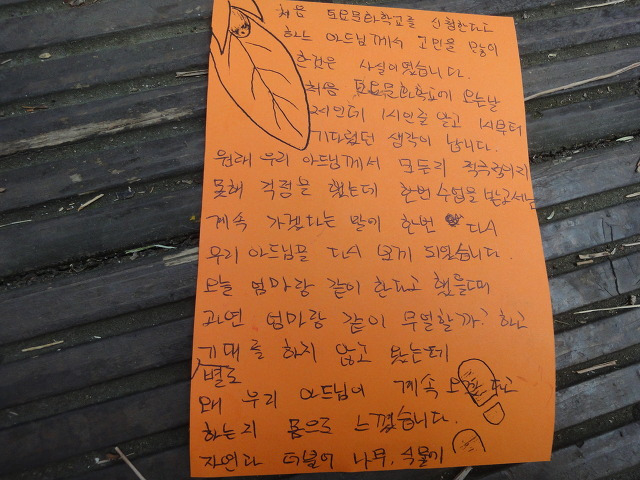 처음 토요문화학교를 신청한다고
하는 아드님께서 고민을 많이
한것은 사실이였습니다.
처음 토요문화학교에 오는날
2시인데 1시인줄 알고 1시부터
기다렸던 생각이 납니다.
원래 우리 아드님께서 모든지 적극적이지
못해 걱정을 했는데 한번 수업을 받고서는
계속 가겠다는 말이 한번 다시
우리 아드님을 다시 보게 되었습니다.
오늘 엄마랑 같이 한다고 했을때
과연 엄마랑 같이 무얼할까? 하고
기대를 하지 않고 왔는데
별로
왜 우리 아드님이 계속 오겠다고
하는지 몸으로 느꼈습니다.
자연과 더불어 나무, 식물이